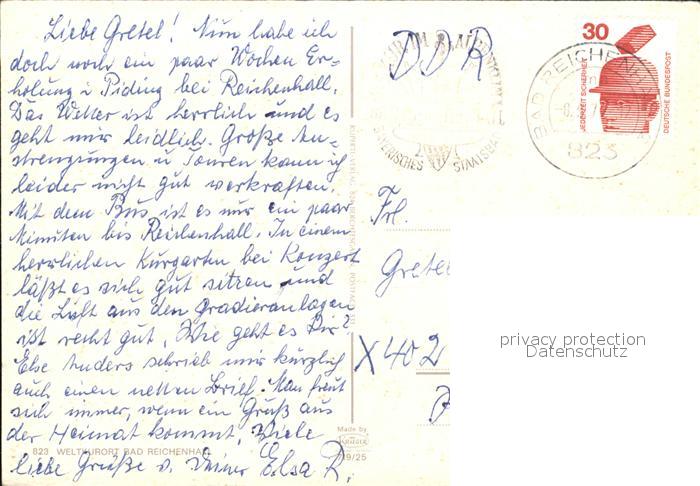 Liebe Gretel! Nun habe ich
doch noch ein paar Wochen Er=
holung i Piding bei Reichenhall.
Das Wetter ist herrlich und es
geht mir leidlich. Große An=
strengungen u Touren kann ich
leider nicht gut verkraften.
Mit dem Bus ist es nur ein paar
Minuten bis Reichenhall. In einem
herrlichen Kurgarten bei Konzert
läßt es sich gut sitzen und
die Luft aus den Gradieranlagen
ist recht gut. Wie geht es Dir?
Else Anders schrieb mir kürzlich
auch einen netten Brief. Man freut
sich immer, wenn ein Gruß aus
der Heimat kommt. Viele
liebe Grüße v. Deiner Elsa R.
823 WELTKURORT BAD REICHENHALL
Made by
KRÜGER
19/25
DDR
BAYERISCHES STAATSBAD
BAD REICHENHALL
823
30
JEDERZEIT SICHERHEIT
DEUTSCHE BUNDESPOST
Frl.
Gretel
X 402
privacy protection
Datenschutz